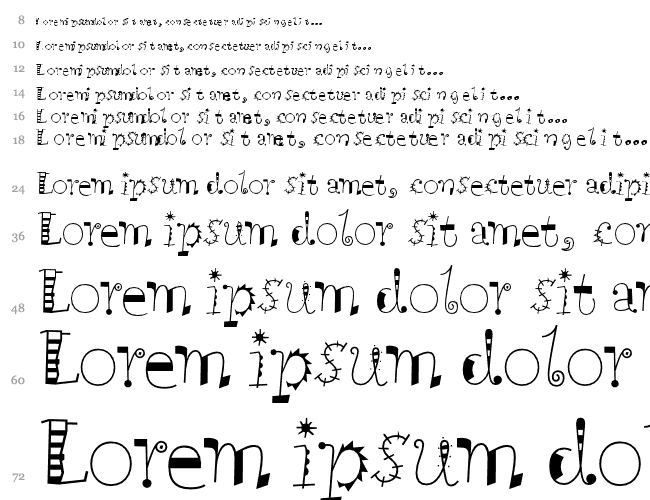 8 Lorem ipsum dolor sit amet, consectetuer adipiscing elit...
10 Lorem ipsum dolor sit amet, consectetuer adipiscing elit...
12 Lorem ipsum dolor sit amet, consectetuer adipiscing elit...
14 Lorem ipsum dolor sit amet, consectetuer adipiscing elit...
16 Lorem ipsum dolor sit amet, consectetuer adipiscing elit...
18 Lorem ipsum dolor sit amet, consectetuer adipiscing elit...
24 Lorem ipsum dolor sit amet, consectetuer adipi
36 Lorem ipsum dolor sit amet, con
48 Lorem ipsum dolor sit ar
60 Lorem ipsum dolor
72 Lorem ipsum do